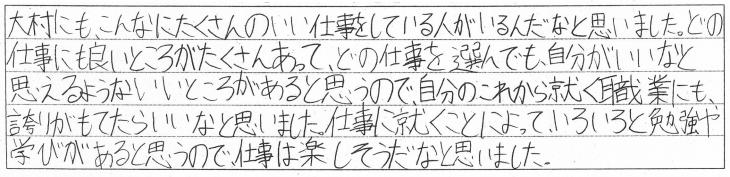 大村にも、こんなにたくさんのいい仕事をしている人がいるんだなと思いました。どの
仕事にも良いところがたくさんあって、どの仕事を選んでも、自分がいいなと
思えるようないいところがあると思うので、自分のこれから就く職業にも、
誇りがもてたらいいなと思いました。仕事に就くことによって、いろいろと勉強や
学びがあると思うので、仕事は楽しそうだなと思いました。